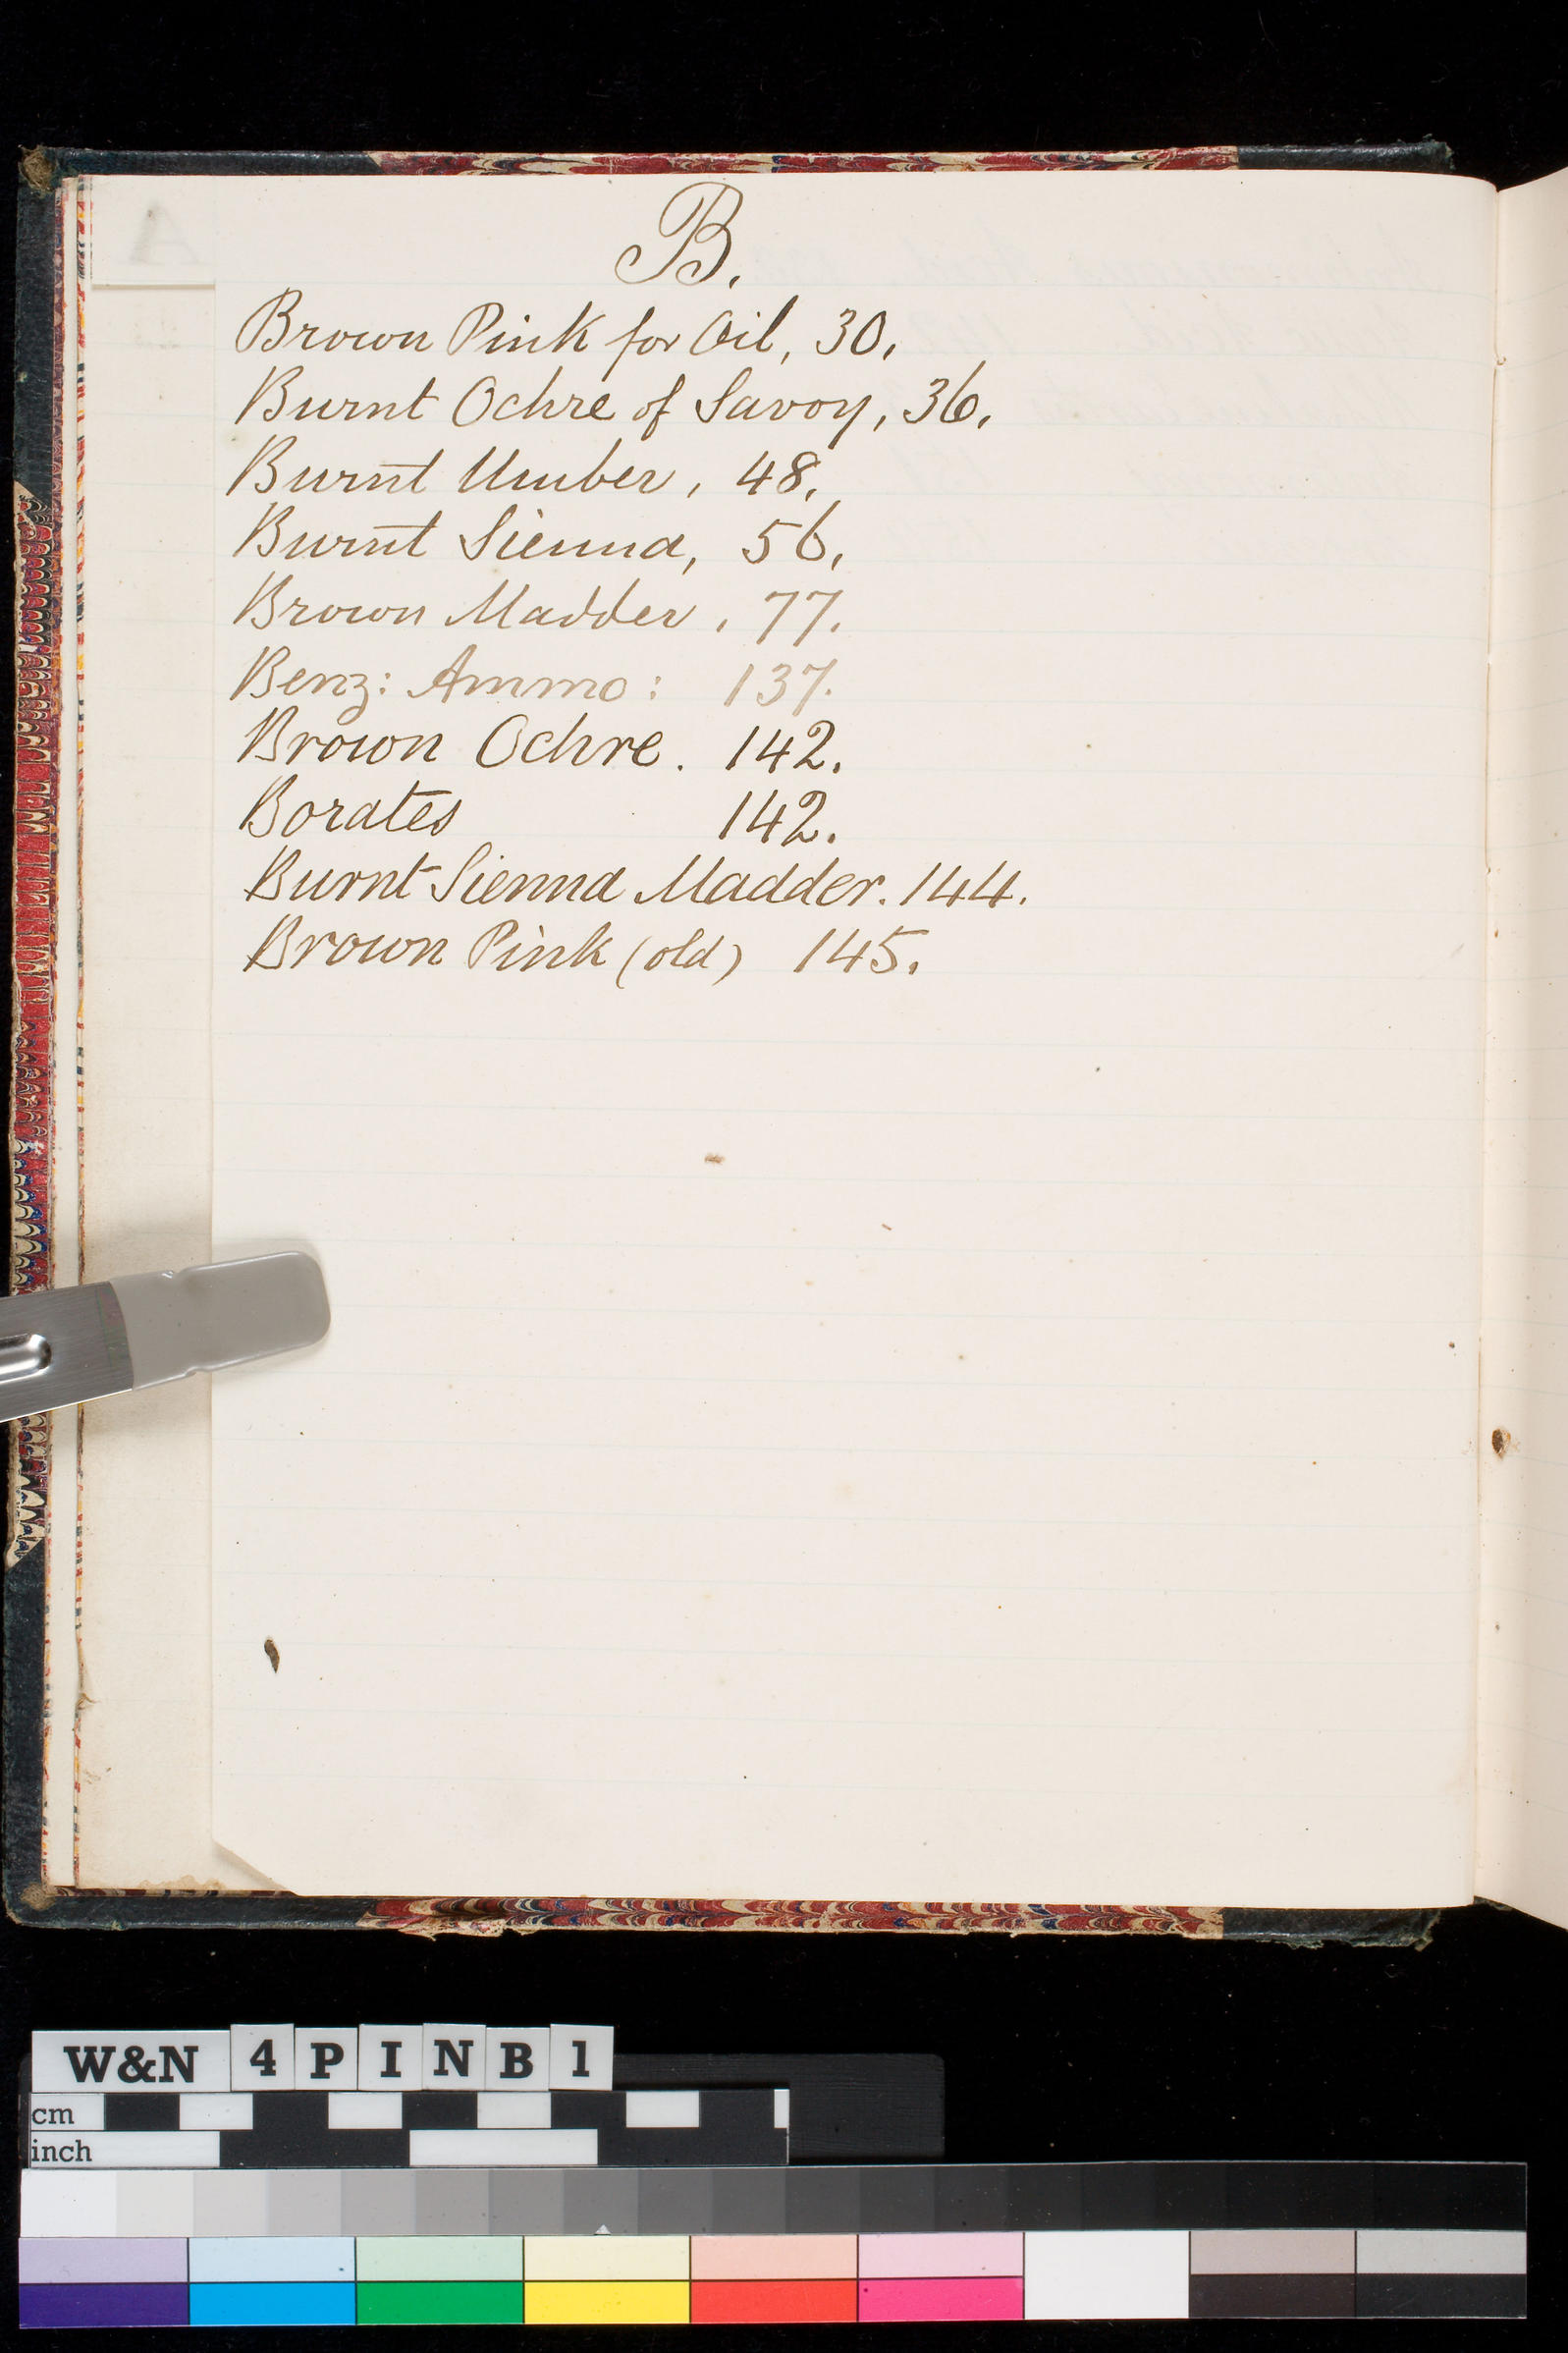 B.
Brown Pink for Oil, 30,
Burnt Ochre of Savoy, 36,
Burnt Umber, 48,
Burnt Sienna, 56,
Brown Madder, 77.
Benz: Ammo: 137.
Brown Ochre. 142.
Borates 142.
Burnt Sienna Madder. 144.
Brown Pink (old) 145.
W&N 4 P I N B 1
cm
inch